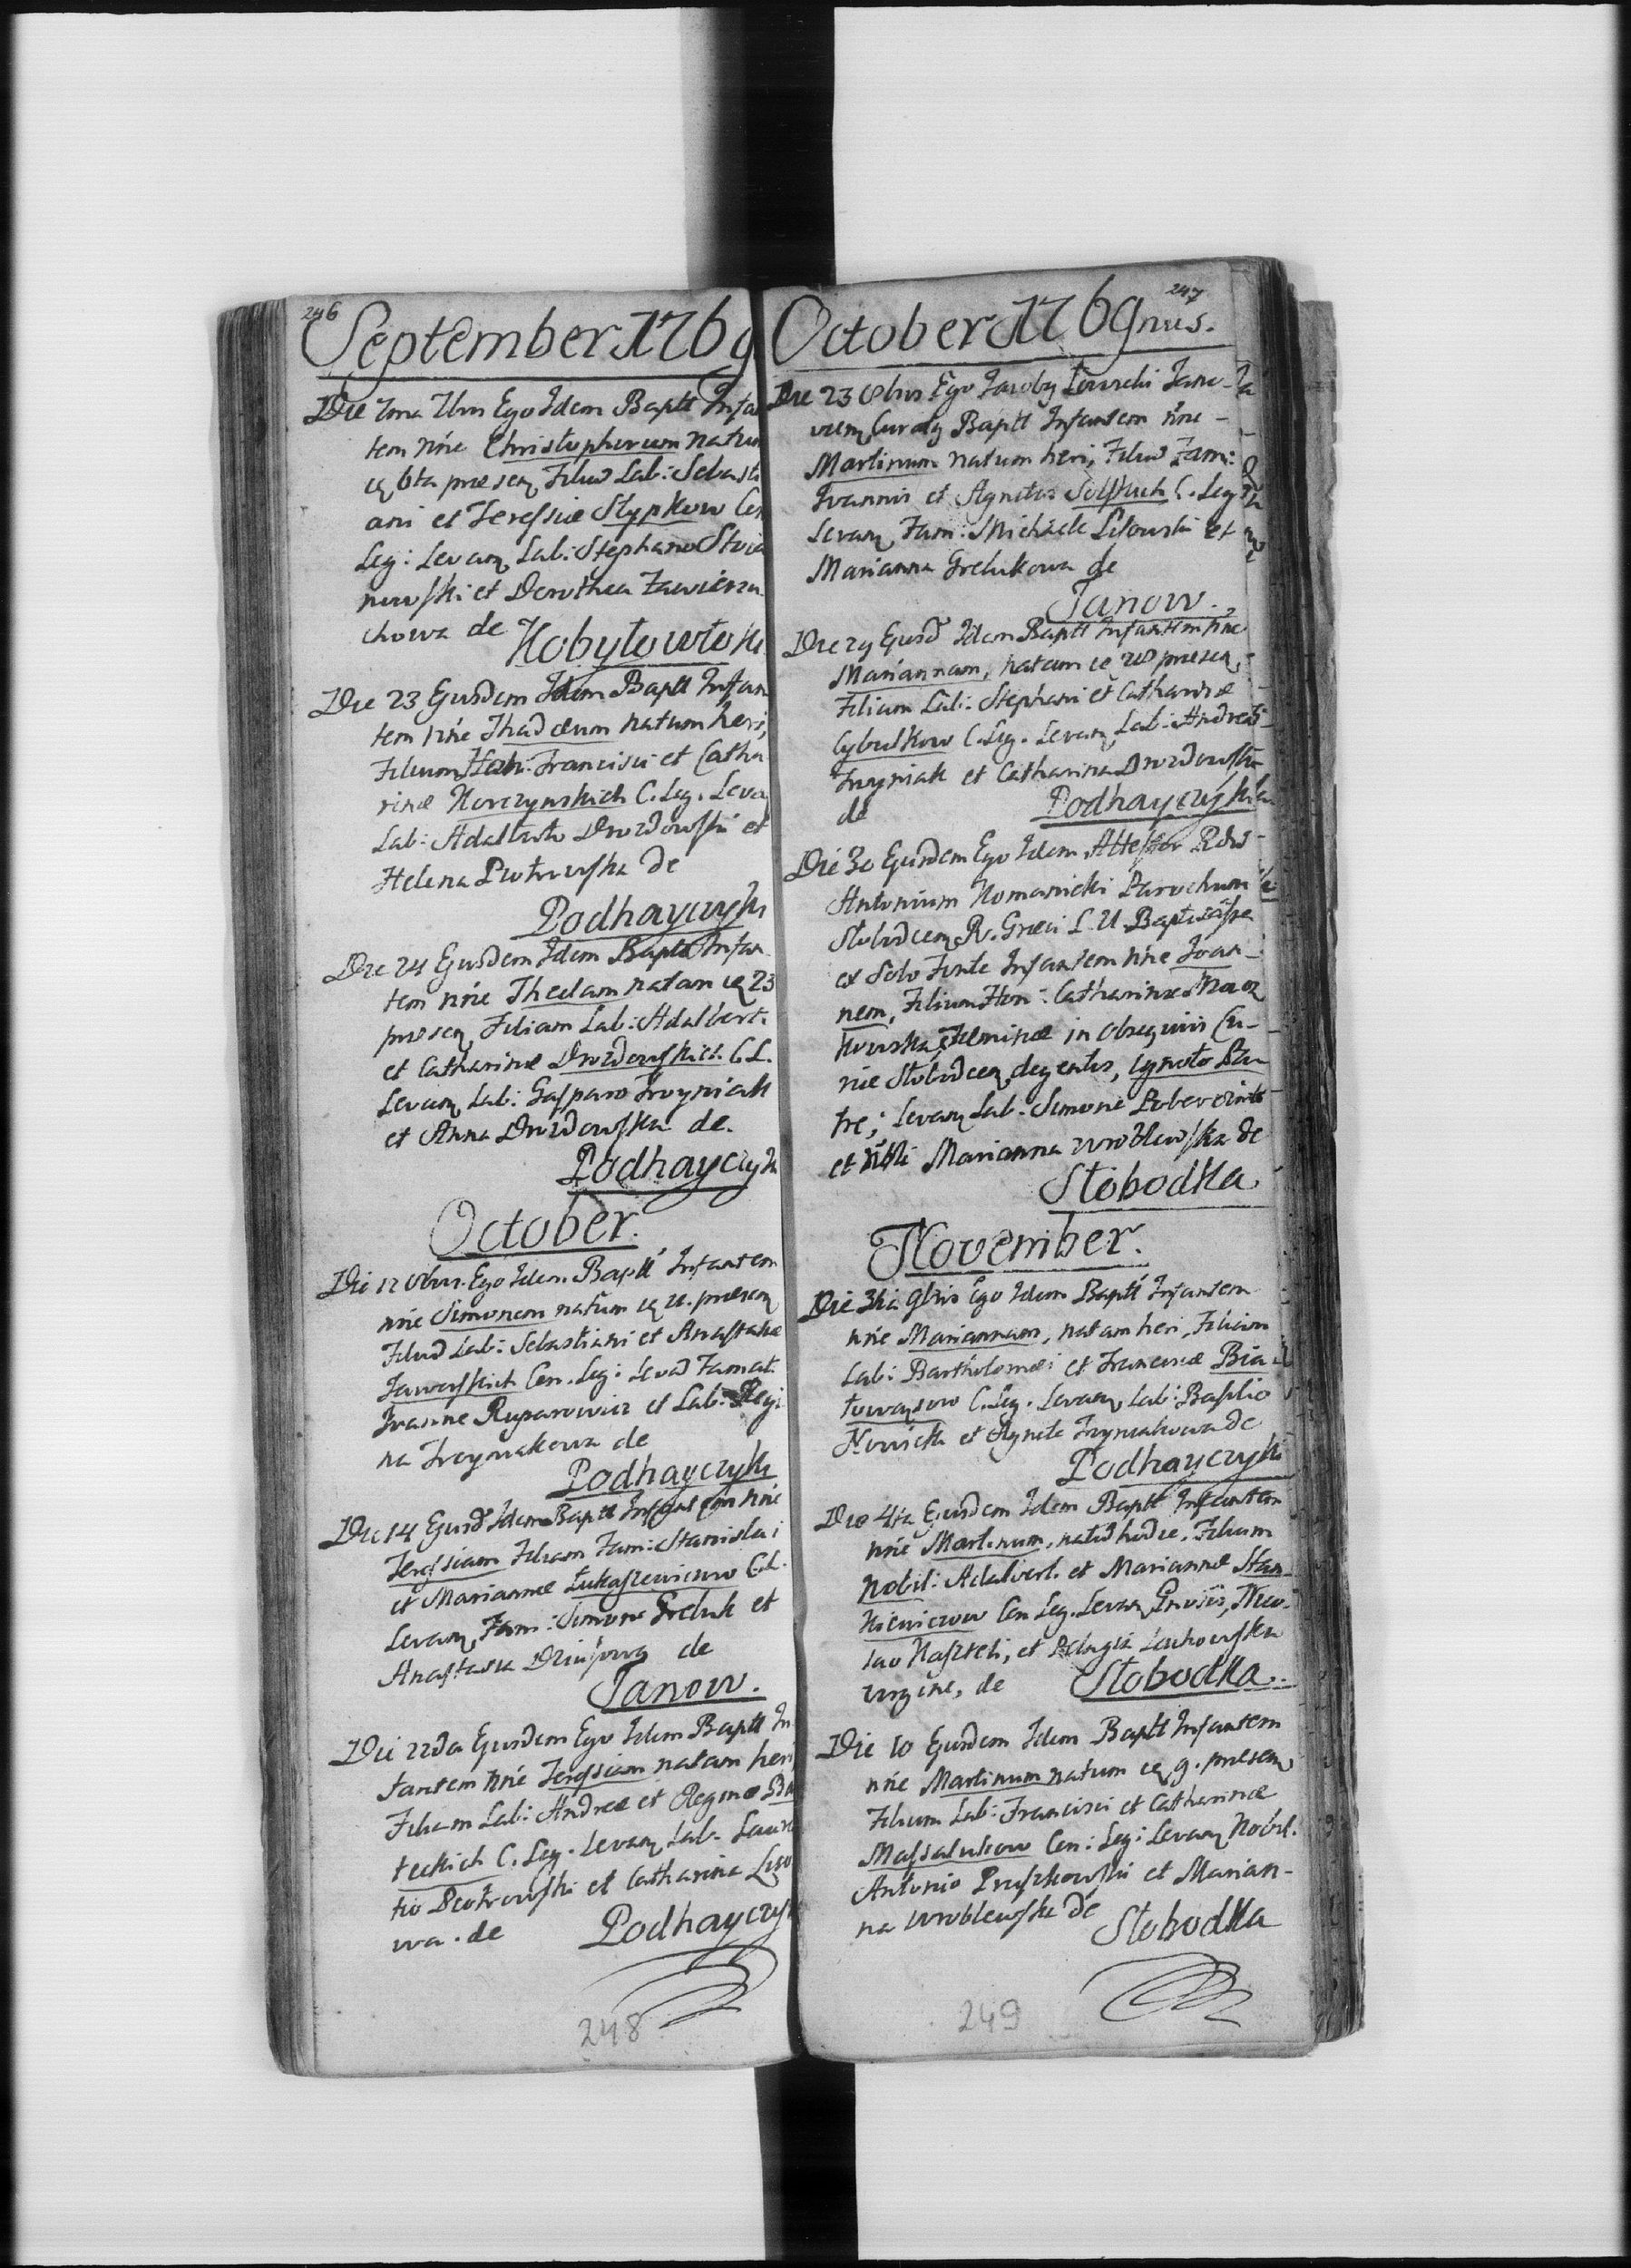 246
September 1769
Die 7ma 7bris Ego Idem Baptt Infan
tem nñe Christophorum natum
6ta præsen Filiũ Lab: Sebasti
ani et Teressiæ Stypkow Con
Leg: Levan Lab: Stephano Stoia
nowski et Dorothea Zawierzu
chowa de Kobyłowłoki
Die 23 Eiusdem Idem Baptt Infan
tem nñe Thadæum natum heri,
Filium Francisci et Catha
rinæ Korczynskich C. Leg. Levan
Lab: Adalberto Drozdowski et
Helena Piotrowska de
Podhayczyki
Die 24 Eiusdem Idem Baptt Infan
tem nñe Theclam natam 23
præsen Filiam Lab: Adalberti
et Catharinæ Drozdowskich C.L.
Levan Lab: Gasparo Troyniak
et Anna Drozdowska de.
Podhayczyki
October.
Die 12 8bris. Ego Idem Baptt Infantem
nñe Simonem natum 11. præsen
Filiũ Lab: Sebastiani et Anastasiæ
Jaworskich Con. Leg: Levã Famat.
Ivanne Ruparowicz et Lab: Regi
na Troyniakowa de
Podhayczyki
Die 14 Eiusd Idem Baptt Infantem nñe
Teressiam Filiam Fam: Stanislai
et Mariannæ Łukaszewiczow C.L.
Levan Fam: Simone Greluk et
Anastasia de
Janow.
Die 22da Eiusdem Ego Idem Baptt In
fantem nñe Teressiam natam heri
Filiam Lab: Andreæ et Reginæ
teckich C. Leg. Levan Lab. Lauren
tio Piotrowski et Catharina
wa. de Podhayczyki
248
247
October 1769nus.
Die 23 8bris Ego Jacoby Janov
vien Curaty Baptt Infantem nñe
Martinum natum heri, Filiũ Fam:
Ivannis et Agnetis C. Leg
Levan Fam: Michaele et
Marianna Grelukowa de
Janow.
Die 29 Eiusd Idem Baptt Infantem nñe
Mariannam, natam 28 præsen
Filiam Lab: Stephani et Catharinæ
Cybulskow C. Leg. Levan Lab: Andrea
Troyniak et Catharina Drozdowska
de Podhayczyki
Die 30 Eiusdem Ego Idem Attestor Rdũ
Antonium Komanicki Parochum
Słobodcen R. Græci L. U. Baptisasse
ex Solo Fonte Infantem nñe Joan
nem, Filium Hon: Catharinæ
kowska Feminæ in Obsequiis Cu
riæ Słobodcen degentis, Ignoto Pa
tre; Levan Lab. Simone
et Nbli Marianna Wroblewska de
Słobodka
November.
Die 3tia 9bris Ego Idem Baptt Infantem
nñe Mariannam, natam heri, Filiam
Lab: Bartholomæi et Franciscæ Bia
towąsow C. Leg. Levan Lab: Basilio
Nowicki et Agnete Troyniakowa de
Podhayczyki
Die 4ta Eiusdem Idem Baptt Infantem
nñe Martinum, natũ hodie, Filium
Nobil: Adalberti et Mariannæ Stan
kiewiczow Con Leg. Levan Nico
lao Kaszteli, et Pelagia Lachowska
Virgine, de Słobodka.
Die 10 Eiusdem Idem Baptt Infantem
nñe Martinum natum 9. præsen
Filium Lab: Francisci et Catharinæ
Massalukow Con: Leg: Levan Nobil.
Antonio Pruszkowski et Marian
na Wroblewska de Słobodka
249